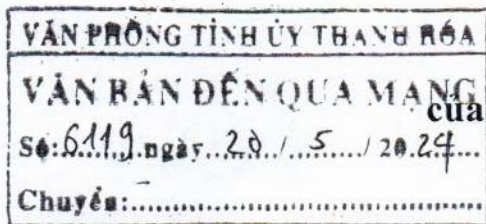 VĂN PHÒNG TỈNH ỦY THANH HÓA
VĂN BẢN ĐẾN QUA MẠNG
của
Số: 6119 ngày 20 / 5 / 2024
Chuyển: